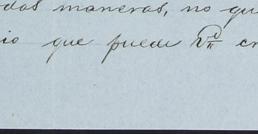 das maneras, no qu
io que puede Vd cr